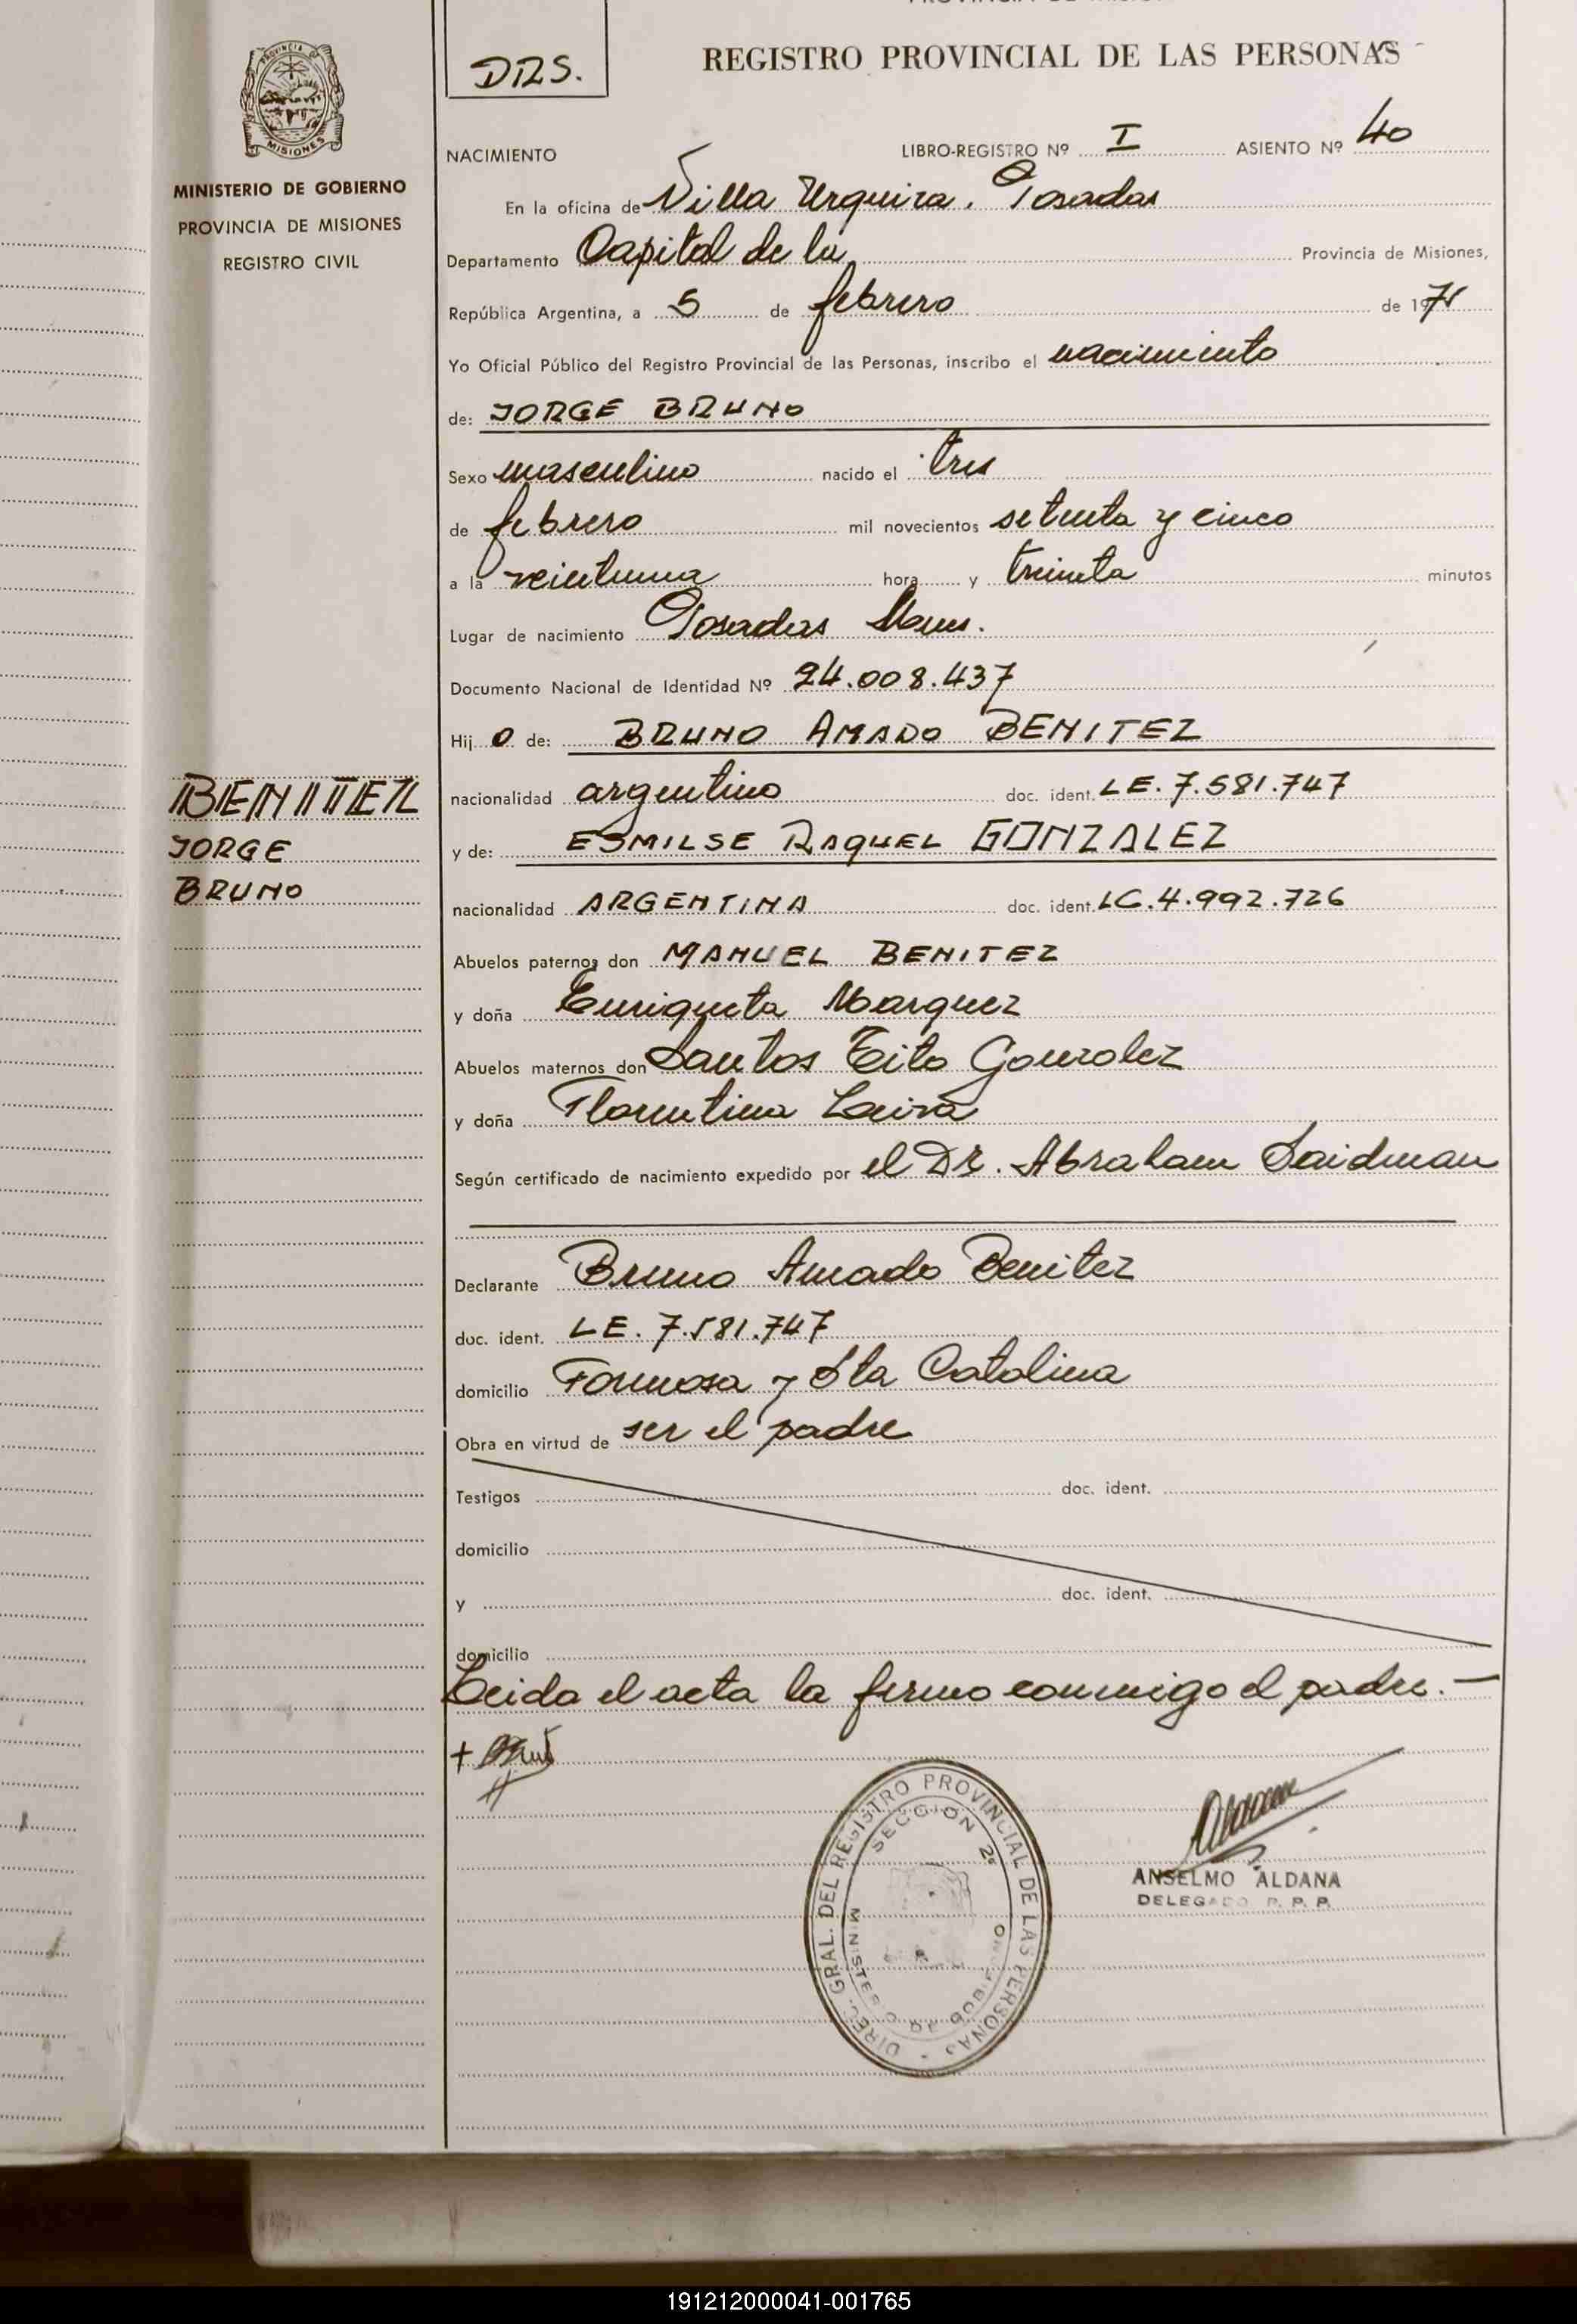 DRS.
REGISTRO PROVINCIAL DE LAS PERSONAS
NACIMIENTO LIBRO-REGISTRO Nº I ASIENTO Nº 40
MISIONES
MINISTERIO DE GOBIERNO
PROVINCIA DE MISIONES
REGISTRO CIVIL
En la oficina de Villa Urquiza. Posadas
Departamento Capital de la Provincia de Misiones,
República Argentina, a 5 de febrero de 1975
Yo Oficial Público del Registro Provincial de las Personas, inscribo el nacimiento
de: JORGE BRUNO
Sexo masculino nacido el tres
de febrero mil novecientos setenta y cinco
a la veintiuna hora y treinta minutos
Lugar de nacimiento Posadas Mnes.
Documento Nacional de Identidad Nº 24.008.437
Hij o de: BRUNO AMADO BENITEZ
BENITEZ
JORGE
BRUNO
nacionalidad argentino doc. ident. LE. 7.581.747
y de: ESMILSE RAQUEL GONZALEZ
nacionalidad ARGENTINA doc. ident. LC. 4.992.726
Abuelos paternos don MANUEL BENITEZ
y doña Enriqueta Marquez
Abuelos maternos don Santos Tito Gonzalez
y doña Florentina Leiva
Según certificado de nacimiento expedido por el Dr. Abraham Saidman
Declarante Bruno Amado Benitez
doc. ident. LE. 7.581.747
domicilio Formosa y Sta Catalina
Obra en virtud de ser el padre
Testigos doc. ident.
domicilio
y doc. ident.
domicilio
Leida el acta la firmo conmigo el padre. —
DIREC. GRAL. DEL REGISTRO PROVINCIAL DE LAS PERSONAS -
SECCION 2ª
MINISTERIO DE GOBIERNO
ANSELMO ALDANA
DELEGADO R. P. P.
191212000041-001765